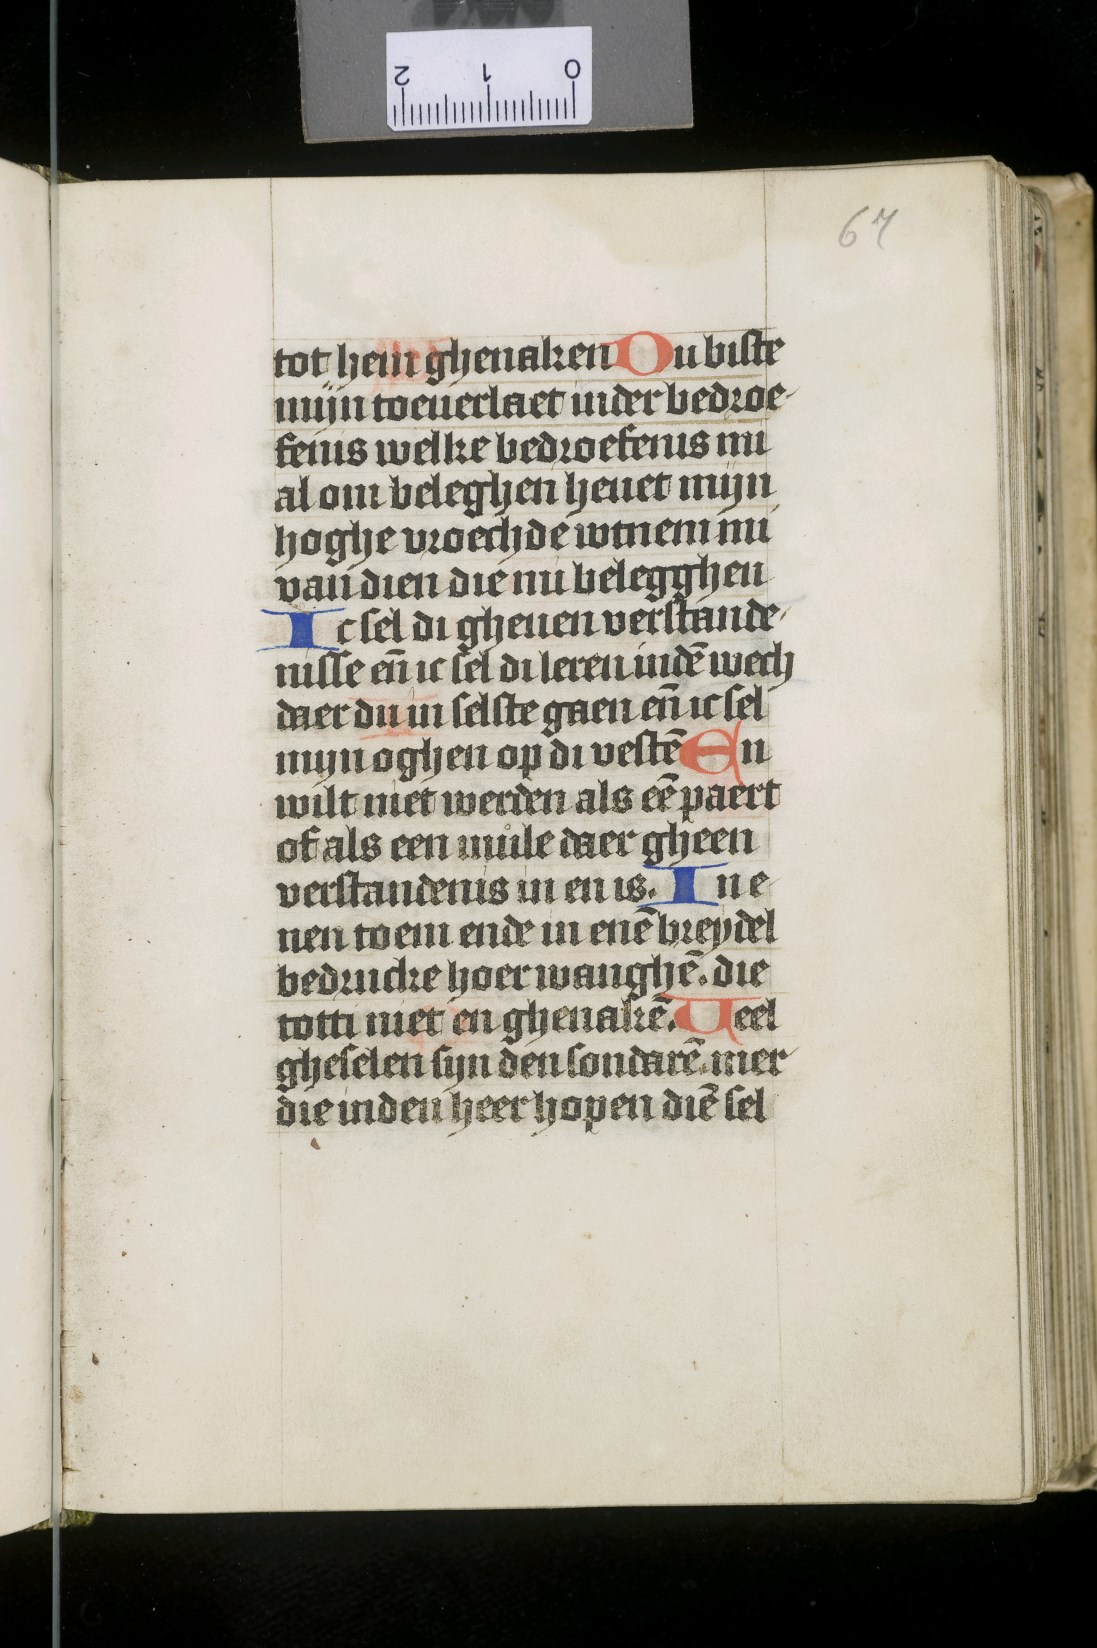 67
tot hem ghenaken Du biste
mijn toeuerlaet inder bedroe-
fenis welke bedroefenis mi
al om beleghen heuet mijn
hoghe vroechde wtnem mi
van dien die mi belegghen
Ic sel di gheuen verstande-
nisse en̄ ic sel di leren indē wech
daer du in selste gaen en̄ ic sel
mijn oghen op di vestē En
wilt niet werden als eē paert
of als een muile daer gheen
verstandenis in en is. In e-
nen toem ende in enē breydel
bedrucke hoer wanghē. die
totti niet en ghenakē. Ueel
gheselen sijn den sondarē mer
die inden heer hopen diē sel
0 1 2